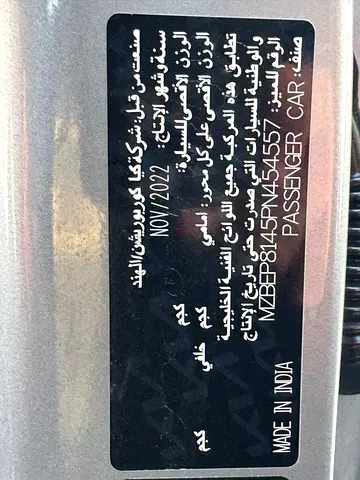 صنعت من قبل: شركة كيا كوربوريشن/الهند
سنة وشهر الانتاج: NOV/2022
الوزن الاقصى للسيارة: كجم
الوزن الاقصى على كل محور: امامي كجم خلفي كجم
تطابق هذه المركبة جميع اللوائح الفنية الخليجية
والوطنية للسيارات التي صدرت حتى تاريخ الإنتاج
الرقم المميز: MZBEP8145PN454557
صنف: PASSENGER CAR MADE IN INDIA